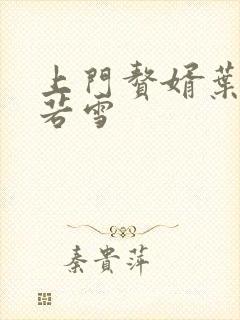 上門贅婿葉
若雪
秦貴萍